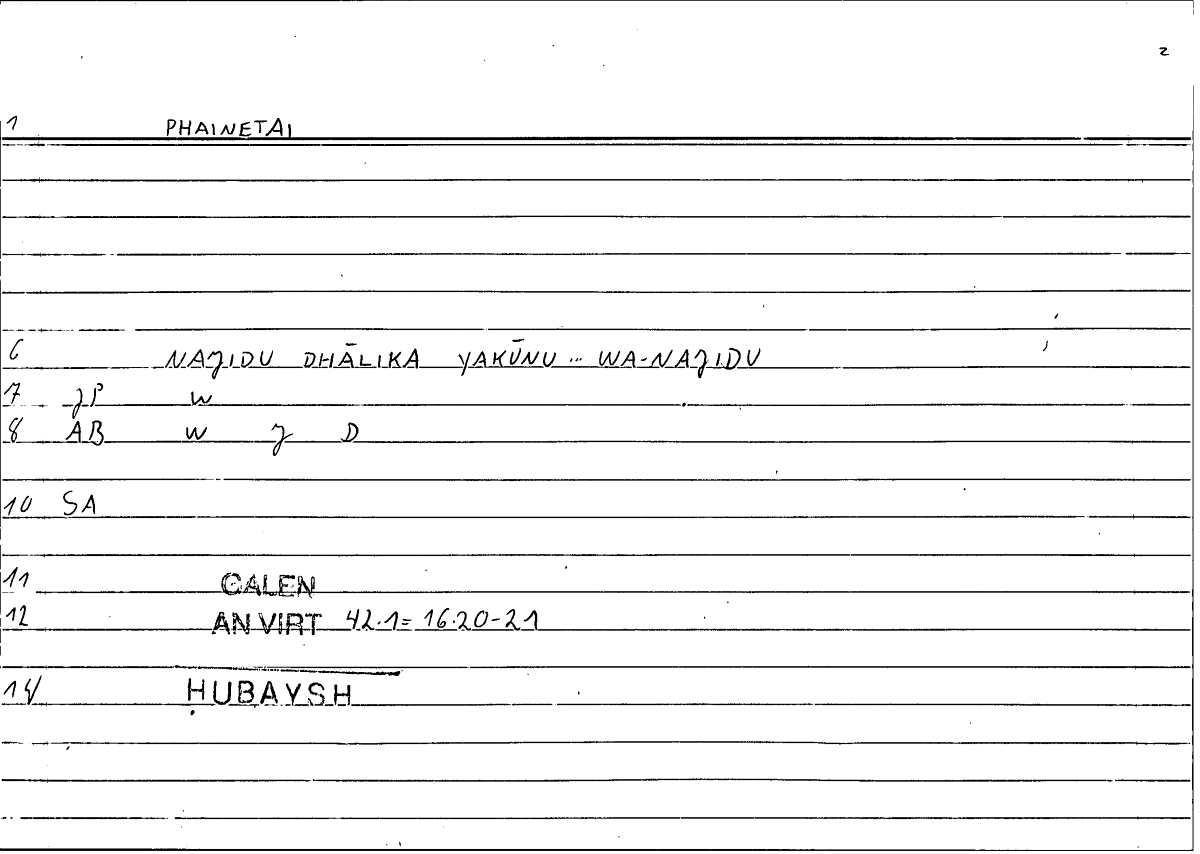 2
1 PHAINETAI
6 NAJIDU DHĀLIKA YAKŪNU ... WA-NAJIDU
7 JP W
8 AB W J D
10 SA
11 GALEN
12 AN VIRT 42.1= 16.20-21
14 ḤUBAYSH